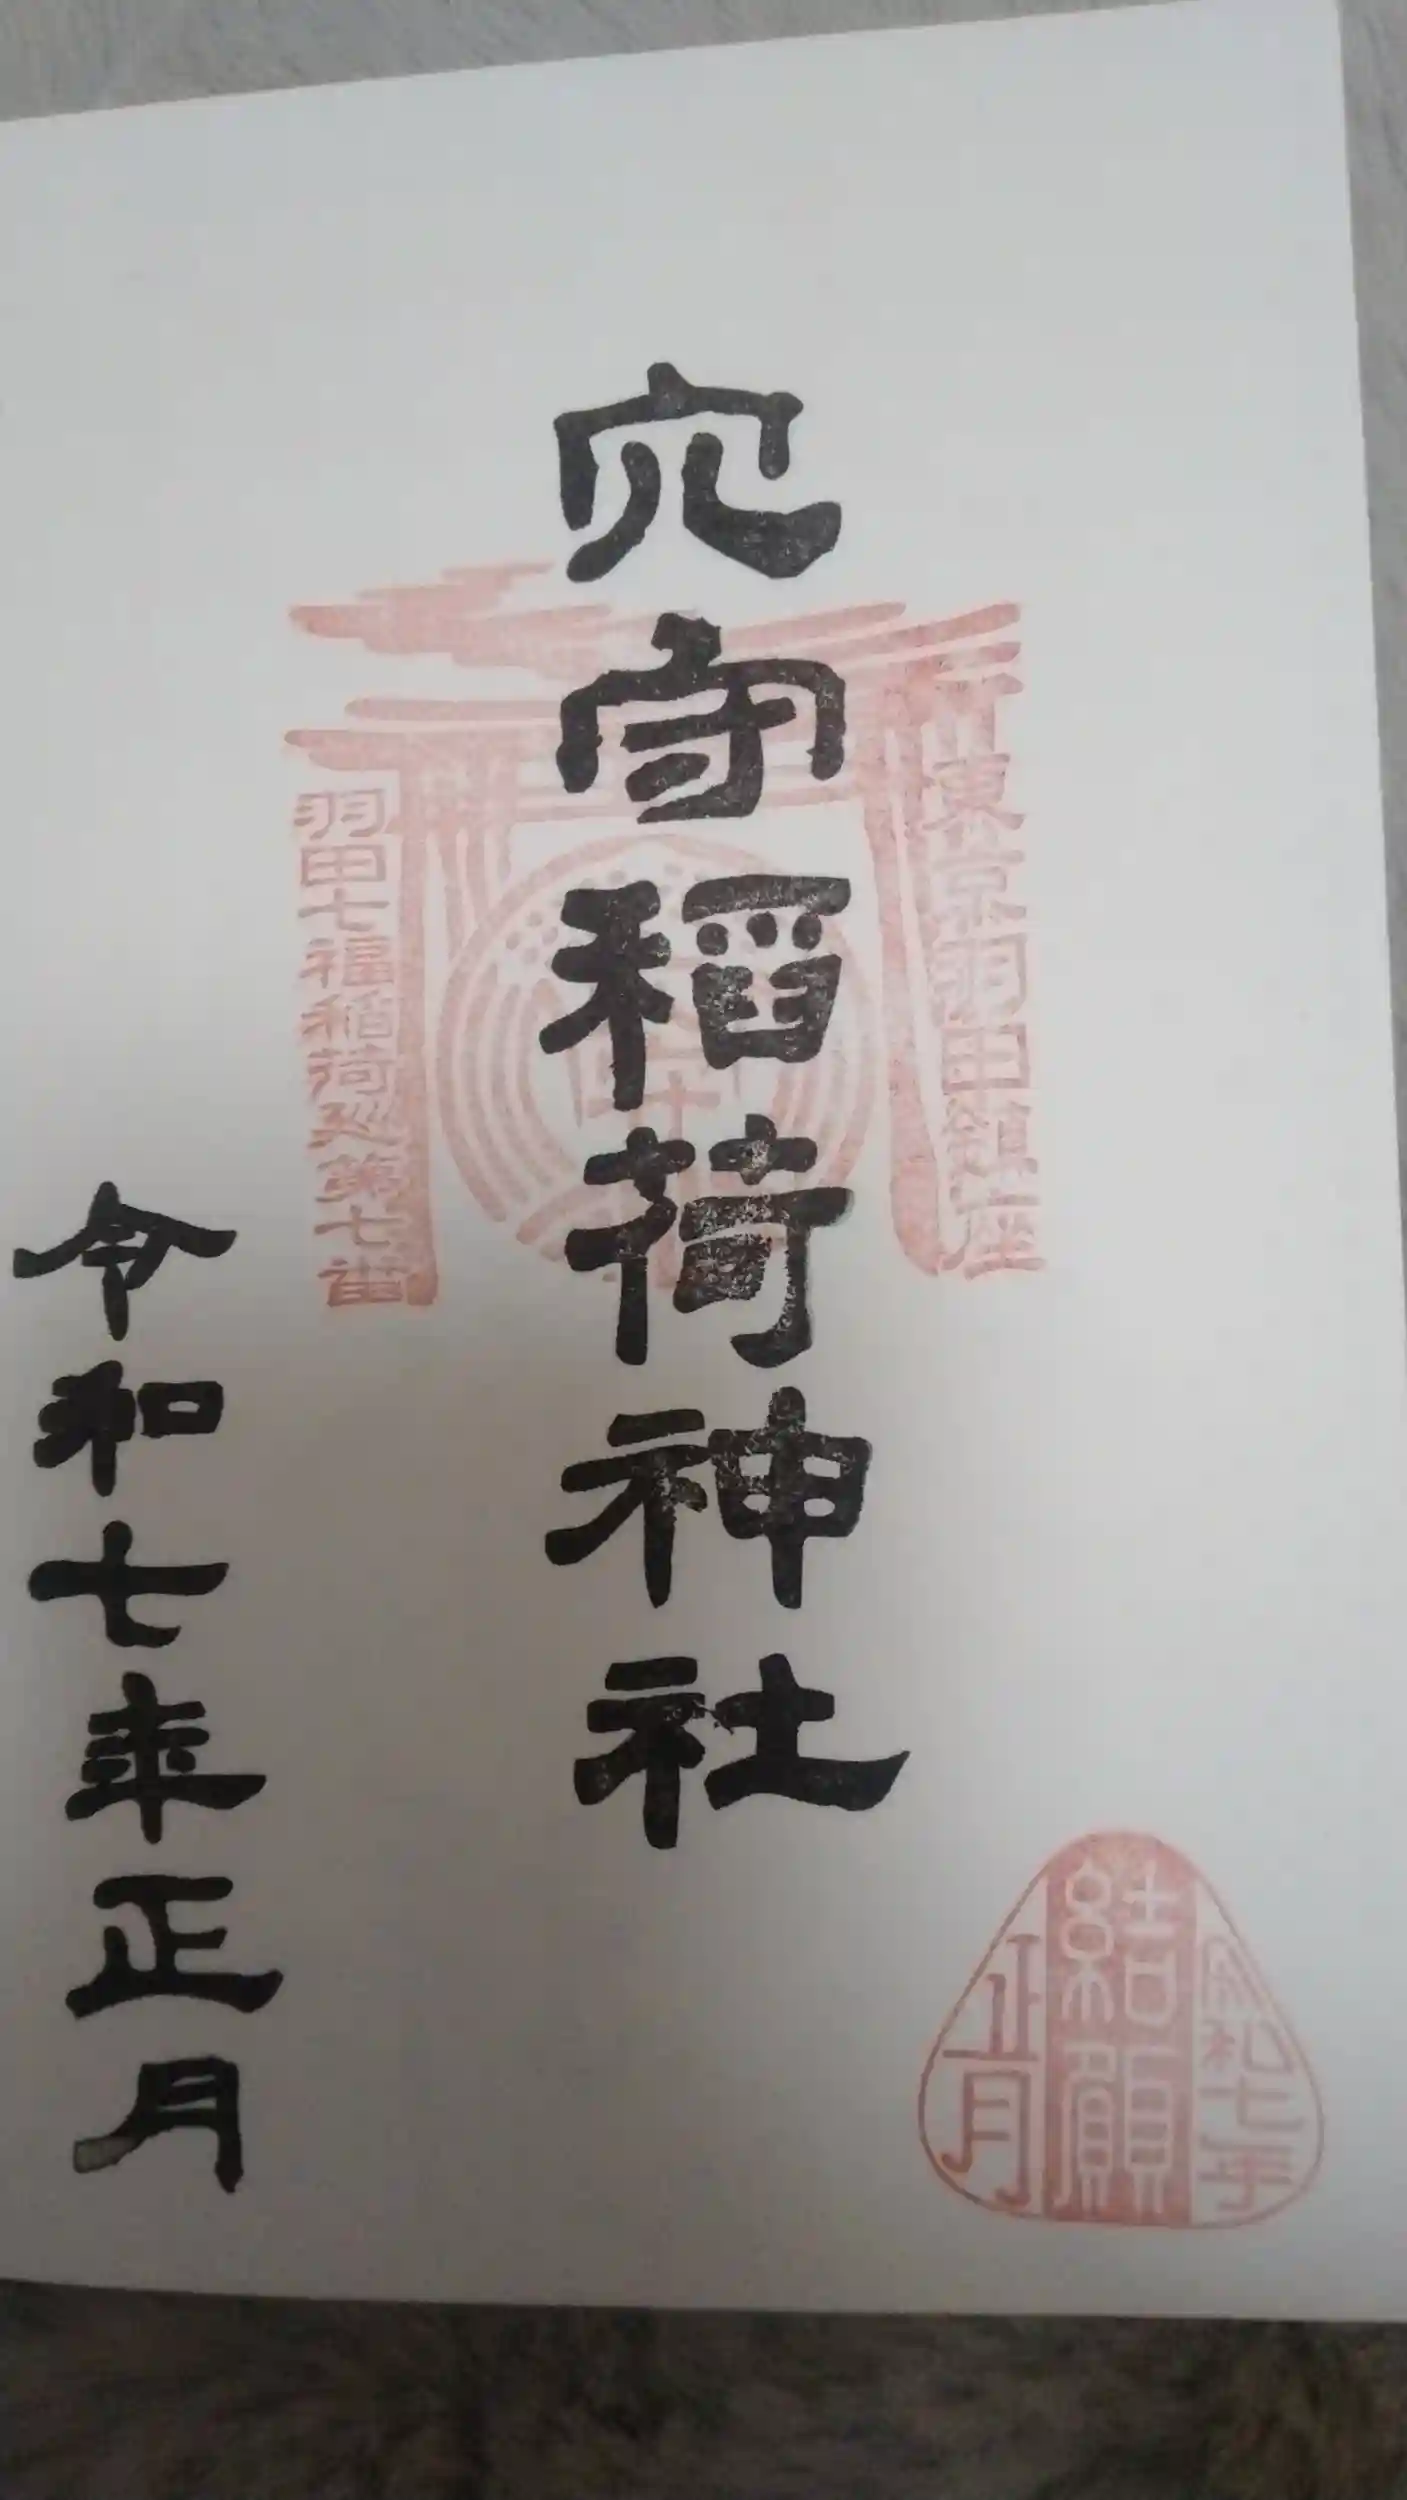 東京羽田鎮座
穴守稲荷神社
羽田七福稲荷巡第七番
令和七年正月
令和七年
結願
正月